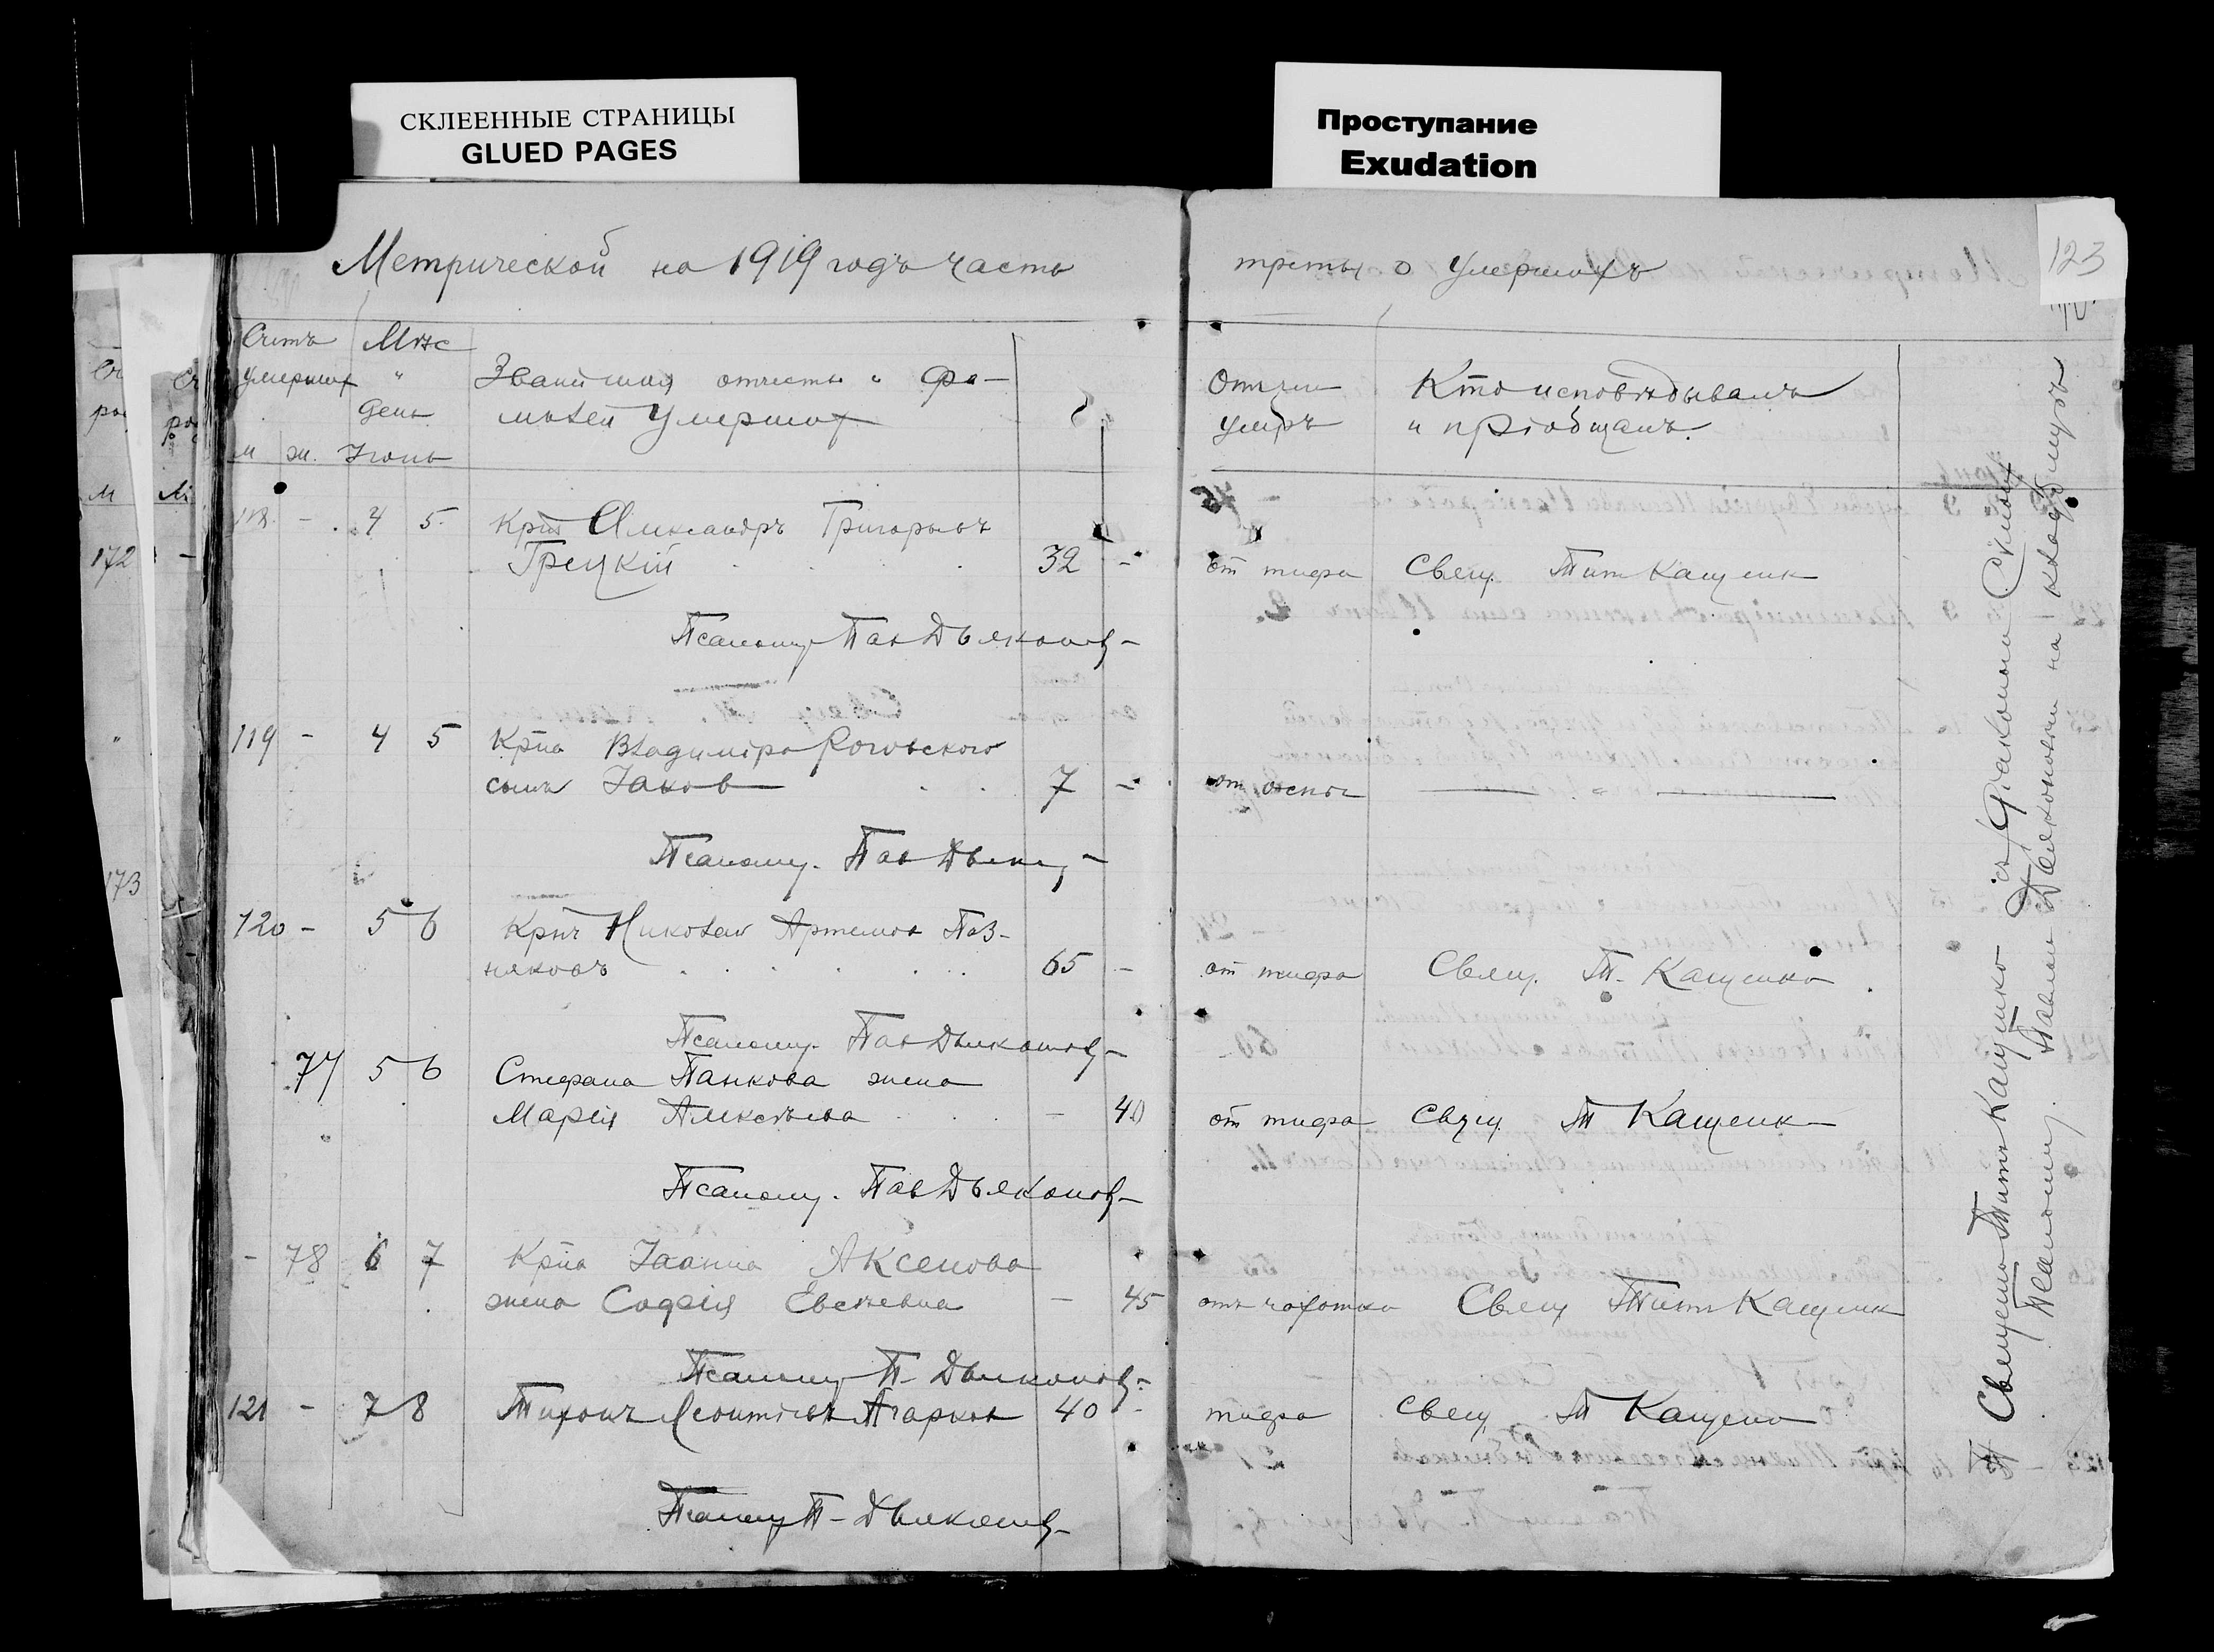 СКЛЕЕННЫЕ СТРАНИЦЫ
GLUED PAGES
Проступание
Exudation
123
Метрической на 1919 годъ часть
третья о умершихъ
Счетъ
умерших
м ж.
Мѣс
"
день
Іюнь
Званіе имя отчество и фа-
милія умерших
Отчего
умеръ
Кто исповѣдывалъ
и пріобщалъ.
118 - 4 5 Крнъ Александръ Григорьевъ
Грецкій 32 - от тифа Свящ. Тит Кащенк
Псаломщ Пав Дьяконов
119 - 4 5 Крна Владиміра Роговского
сынъ Іаков 7 - от оспы
Псаломщ. Пав Дьяк
120 - 5 6 Крнъ Николай Артемов Поз-
няковъ 65 - от тифа Свящ. Т. Кащенко
Псаломщ. Пав Дьяконов
77 5 6 Стефана Панкова жена
Марія Алексѣева - 40 от тифа Свящ Т Кащенк
Псаломщ. Пав Дьяконов
- 78 6 7 Крна Іоанна Аксенова
жена Софія Евсѣевна - 45 отъ чахотки Свящ Титъ Кащенк
Псаломщ П. Дьяконов
121 - 7 8 Тихонъ Леонтіевъ Агарков 40 - тифа Свящ Т Кащенко
Псаломщ П. Дьяконов
Священно Титъ Кащенко съ Діакономъ
Псаломщ. Павлом Дьяконовым на кладбищѣ
172
173